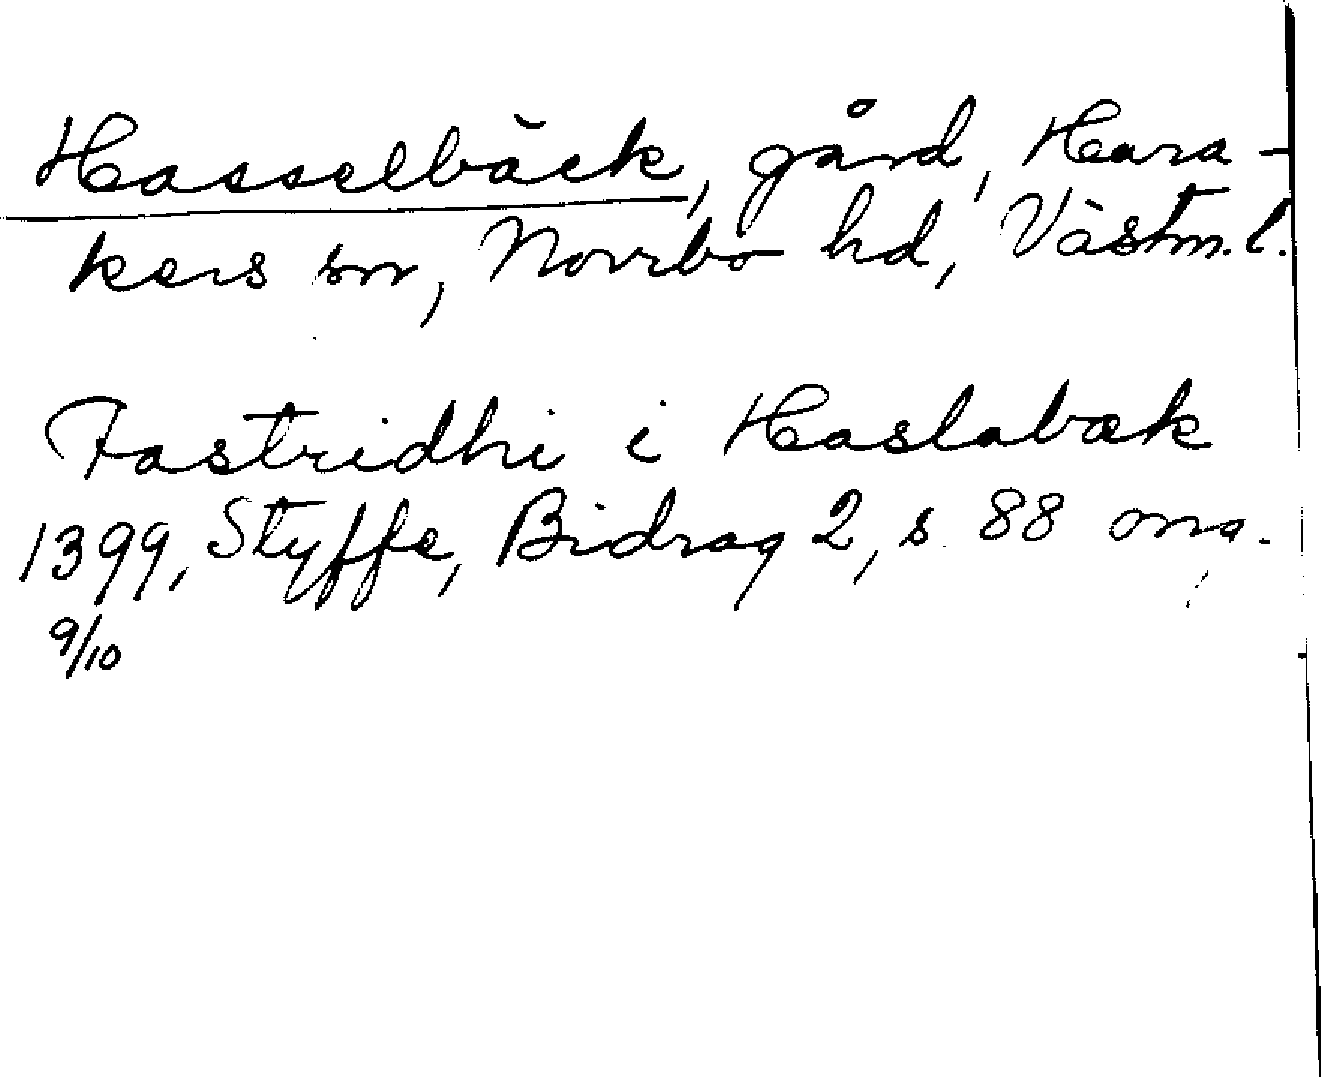 Hasselbäck, gård, Hara-
kers sn, Norrbo hd, Västm.l.
Fastridhi i Haslabæk
1399, Styffe, Bidrag 2, s. 88 oma.
9/10